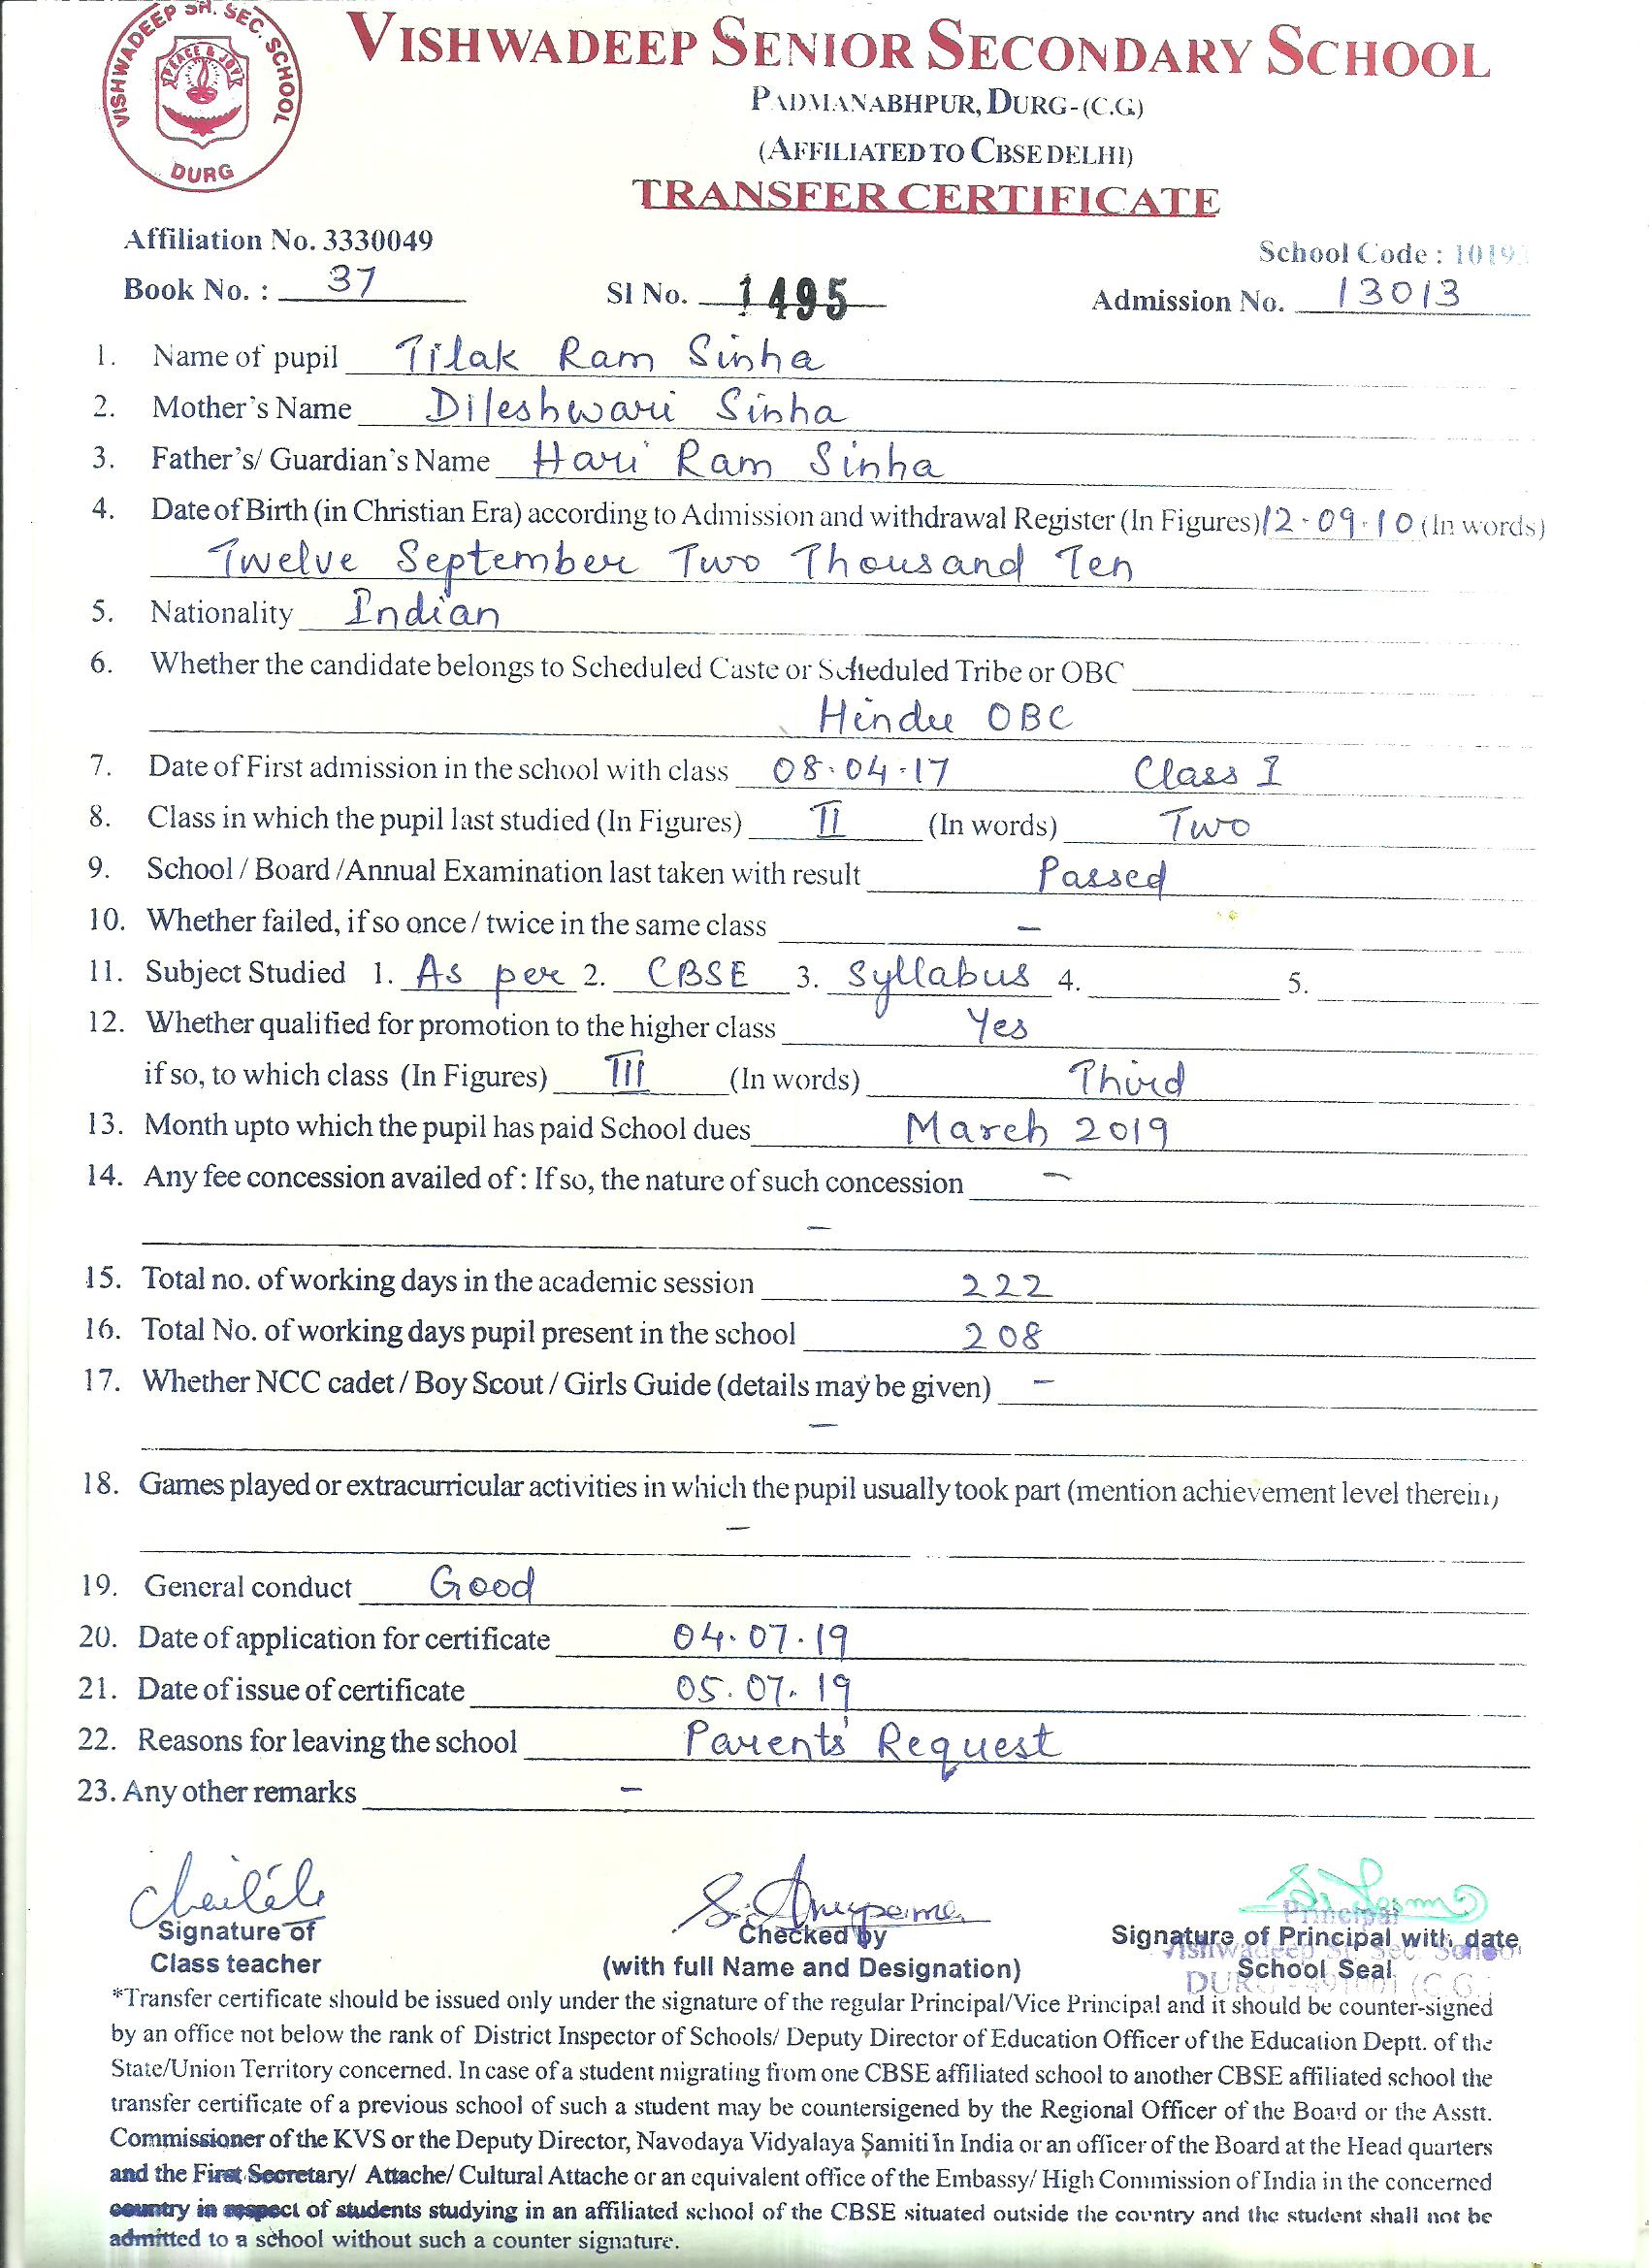 VISHWADEEP SR. SEC. SCHOOL
PEACE & JOY
DURG
VISHWADEEP SENIOR SECONDARY SCHOOL
PADMANABHPUR, DURG-(C.G)
(AFFILIATED TO CBSE DELHI)
TRANSFER CERTIFICATE
Affiliation No. 3330049
School Code : 1019
Book No. : 37 Sl No. 1495 Admission No. 13013
1. Name of pupil Tilak Ram Sinha
2. Mother's Name Dileshwari Sinha
3. Father's/ Guardian's Name Hari Ram Sinha
4. Date of Birth (in Christian Era) according to Admission and withdrawal Register (In Figures) 12-09-10 (In words)
Twelve September Two Thousand Ten
5. Nationality Indian
6. Whether the candidate belongs to Scheduled Caste or Scheduled Tribe or OBC
Hindu OBC
7. Date of First admission in the school with class 08.04.17 Class I
8. Class in which the pupil last studied (In Figures) II (In words) Two
9. School / Board /Annual Examination last taken with result Passed
10. Whether failed, if so once / twice in the same class –
11. Subject Studied 1. As per 2. CBSE 3. Syllabus 4. 5.
12. Whether qualified for promotion to the higher class Yes
if so, to which class (In Figures) III (In words) Third
13. Month upto which the pupil has paid School dues March 2019
14. Any fee concession availed of : If so, the nature of such concession –
–
15. Total no. of working days in the academic session 222
16. Total No. of working days pupil present in the school 208
17. Whether NCC cadet / Boy Scout / Girls Guide (details may be given) –
–
18. Games played or extracurricular activities in which the pupil usually took part (mention achievement level therein)
–
19. General conduct Good
20. Date of application for certificate 04.07.19
21. Date of issue of certificate 05.07.19
22. Reasons for leaving the school Parents' Request
23. Any other remarks –
S. Anupama
Principal
Signature of Checked by Signature of Principal with date
Vishwadeep Sr. Sec. School
Class teacher (with full Name and Designation) School Seal
DURG - 491001 (C.G.
*Transfer certificate should be issued only under the signature of the regular Principal/Vice Principal and it should be counter-signed
by an office not below the rank of District Inspector of Schools/ Deputy Director of Education Officer of the Education Deptt. of the
State/Union Territory concerned. In case of a student migrating from one CBSE affiliated school to another CBSE affiliated school the
transfer certificate of a previous school of such a student may be countersigened by the Regional Officer of the Board or the Asstt.
Commissioner of the KVS or the Deputy Director, Navodaya Vidyalaya Samiti in India or an officer of the Board at the Head quarters
and the First Secretary/ Attache/ Cultural Attache or an equivalent office of the Embassy/ High Commission of India in the concerned
country in respect of students studying in an affiliated school of the CBSE situated outside the country and the student shall not be
admitted to a school without such a counter signature.